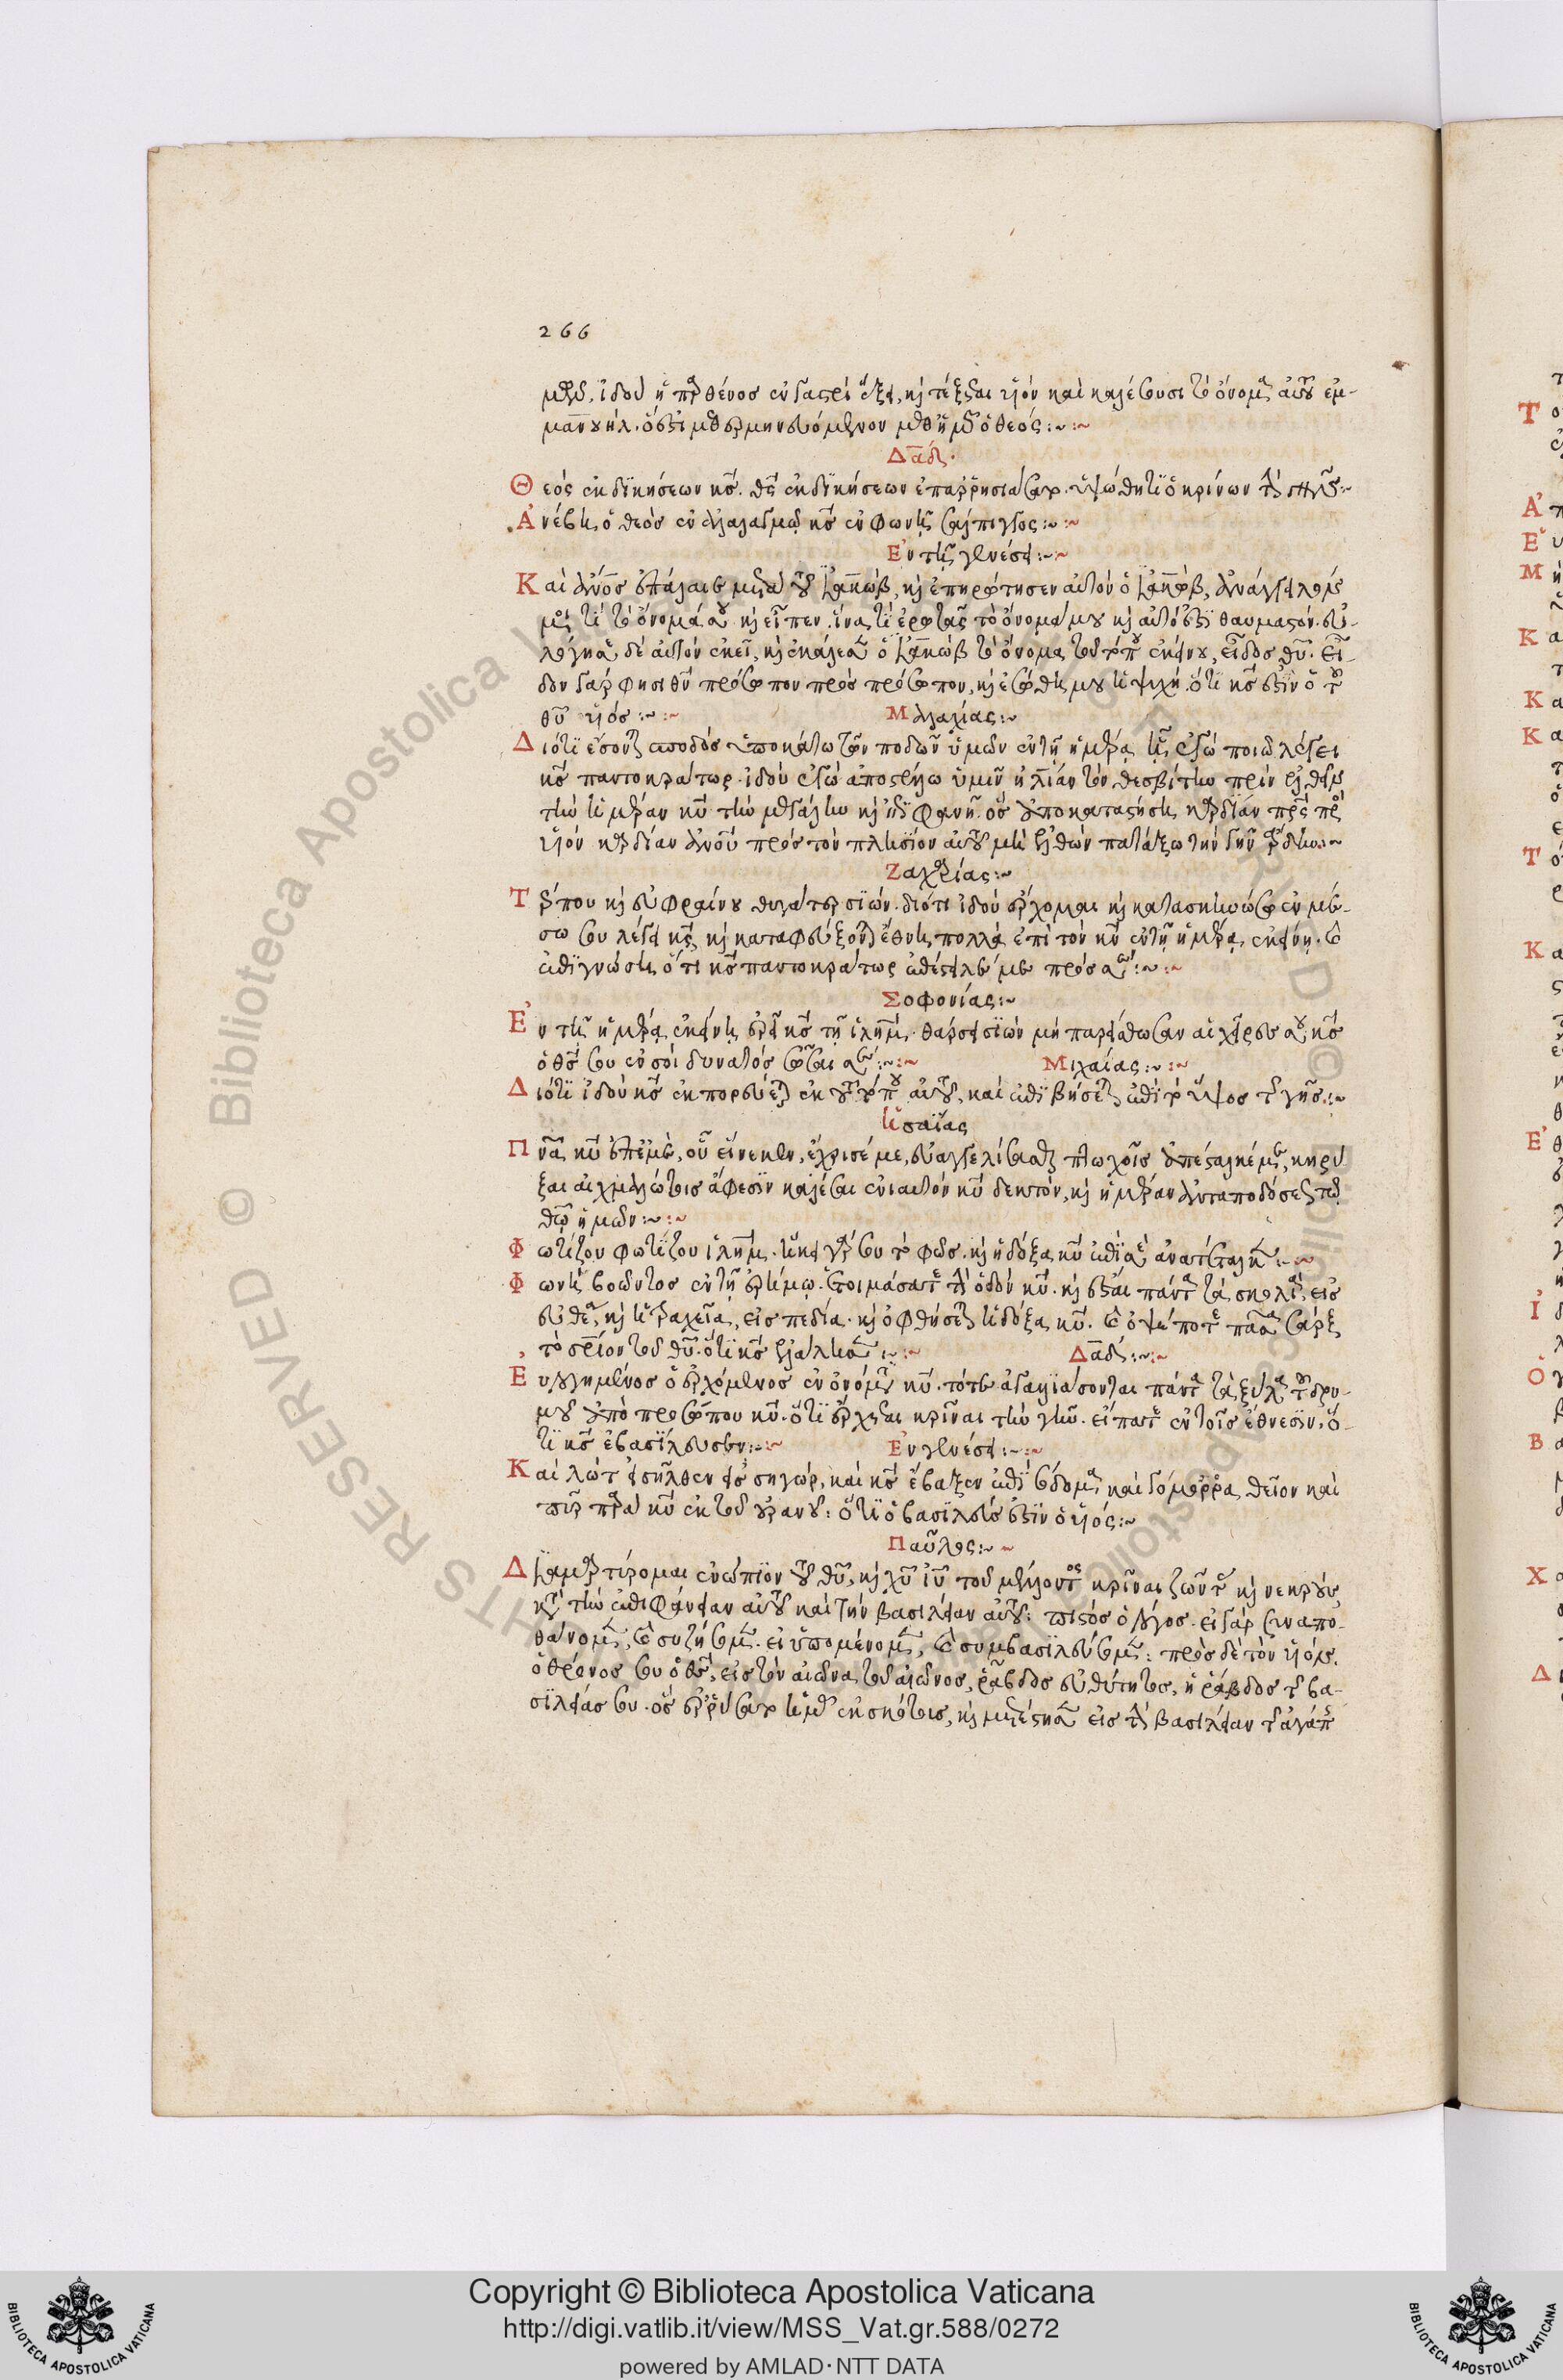 266
ἰδοὺ ἡ παρθένος ἐν γαστρὶ ἕξει, καὶ τέξεται υἱόν καὶ καλέσουσι τὸ ὄνομα αὐτοῦ ἐμ-
μανουήλ. ὅ ἐστι μεθερμηνευόμενον μεθ' ἡμῶν ὁ θεός :~
Δαδ
Θεός ἐκδικήσεων κς. θς ἐκδικήσεων ἐπαρρησιάσατο. ὑψώθητι ὁ κρίνων τὴν γῆν :~
Ἀνέβη ὁ θεὸς ἐν ἀλαλαγμῷ κς ἐν φωνῇ σάλπιγγος :~
Ἐν τῇ γενέσει :~
Καὶ ἄνος ἐπάλαιε μετὰ τοῦ Ἰακώβ, καὶ ἐπηρώτησεν αὐτὸν ὁ Ἰακώβ, ἀνάγγειλόν
μοι τί τὸ ὄνομά σου καὶ εἶπεν. ἵνα τί ἐρωτᾷς τὸ ὄνομά μου καὶ αὐτό ἐστι θαυμαστόν. εὐ-
λόγησε δὲ αὐτὸν ἐκεῖ, καὶ ἐκάλεσε ὁ Ἰακὼβ τὸ ὄνομα τοῦ τόπου ἐκείνου, εἶδος θυ. εἶ-
δον γάρ φησι θν πρόσωπον πρὸς πρόσωπον, καὶ ἐσώθη μου ἡ ψυχή. ὅτι κς ἐστὶν ὁ τοῦ
θυ υἱός :~ Μαλαχίας :~
Διότι ἔσονται σποδός ὑποκάτω τῶν ποδῶν ὑμῶν ἐν τῇ ἡμέρᾳ ᾗ ἐγώ ποιῶ λέγει
κς παντοκράτωρ. ἰδοὺ ἐγὼ ἀποστέλλω ὑμῖν ἠλίαν τὸν θεσβίτην πρὶν ἐλθεῖν
τὴν ἡμέραν κυ τὴν μεγάλην καὶ ἐπιφανῆ. ὃς ἀποκαταστήσει καρδίαν πρς πρὸς
υἱόν καρδίαν ἀνου πρὸς τὸν πλησίον αὐτοῦ μὴ ἐλθὼν πατάξω τὴν γῆν ἄρδην :~
Ζαχαρίας :~
Τέρπου καὶ εὐφραίνου θυγάτερ σιών. διότι ἰδοὺ ἔρχομαι καὶ κατασκηνώσω ἐν μέ-
σω σου λέγει κς, καὶ καταφεύξονται ἔθνη πολλὰ ἐπὶ τὸν κν ἐν τῇ ἡμέρᾳ ἐκείνῃ. καὶ
ἐπιγνώσῃ ὅτι κς παντοκράτωρ ἀπέσταλκέ με πρὸς σέ :~
Σοφονίας :~
Ἐν τῇ ἡμέρᾳ ἐκείνῃ ἐρεῖ κς τῇ ἱλημ. θάρσει σιών μὴ παρείσθωσαν αἱ χεῖρές σου κς
ὁ θς σου ἐν σοί δυνατός σῶσαι σε :~ Μιχαίας :~
Διότι ἰδοὺ κς ἐκπορεύεται ἐκ τοῦ τόπου αὐτοῦ, καὶ ἐπιβήσεται ἐπὶ τὸ ὕψος τῆς γῆς :~
Ἡσαΐας
Πνα κυ ἐπ' ἐμέ, οὗ εἵνεκεν, ἔχρισέ με, εὐαγγελίσασθαι πτωχοῖς ἀπέσταλκέ με, κηρύ
ξαι αἰχμαλώτοις ἄφεσιν καλέσαι ἐνιαυτόν κυ δεκτόν, καὶ ἡμέραν ἀνταποδόσεως τῷ
θῷ ἡμῶν :~
Φωτίζου φωτίζου ἱλημ. ἥκει γάρ σου τὸ φῶς. καὶ ἡ δόξα κυ ἐπὶ σὲ ἀνατέταλκεν :~
Φωνὴ βοῶντος ἐν τῇ ἐρήμῳ. ἑτοιμάσατε τὴν ὁδόν κυ. καὶ ἔσται πάντα τὰ σκολιά, εἰς
εὐθεῖαν, καὶ ἡ τραχεῖα, εἰς πεδία. καὶ ὀφθήσεται ἡ δόξα κυ. καὶ ὄψεται πᾶσα σάρξ
τὸ σριον τοῦ θυ. ὅτι κς ἐλάλησεν :~ Δαδ :~
Εὐλογημένος ὁ ἐρχόμενος ἐν ὀνόματι κυ. τότε ἀγαλλιάσονται πάντα τὰ ξύλα τοῦ δρυ-
μοῦ ἀπὸ προσώπου κυ. ὅτι ἔρχεται κρῖναι τὴν γῆν. εἴπατε ἐν τοῖς ἔθνεσιν. ὅ-
τι κς ἐβασίλευσεν :~ Ἐν γενέσει :~
Καὶ λὼτ εἰσῆλθεν εἰς σηγώρ, καὶ κς ἔβρεξεν ἐπὶ σόδομα καὶ γόμορρα, θεῖον καὶ
πῦρ παρὰ κυ ἐκ τοῦ οὐρανοῦ : ὅτι ὁ βασιλεύς ἐστιν ὁ υἱός :~
Παῦλος :~
Διαμαρτύρομαι ἐνώπιον τοῦ θυ, καὶ χυ ἰυ τοῦ μέλλοντος κρῖναι ζῶντας καὶ νεκροὺς
κατὰ τὴν ἐπιφάνειαν αὐτοῦ καὶ τὴν βασιλείαν αὐτοῦ : πιστός ὁ λόγος. εἰ γάρ συναπο-
θάνομεν, καὶ συζήσομεν. εἰ ὑπομένομεν, καὶ συμβασιλεύσομεν : πρὸς δὲ τὸν υἱόν.
ὁ θρόνος σου ὁ θς, εἰς τὸν αἰῶνα τοῦ αἰῶνος, ῥάβδος εὐθύτητος, ἡ ῥάβδος τῆς βα-
σιλείας σου. ὃς ἐρρύσατο ἡμᾶς ἐκ σκότους, καὶ μετέστησεν εἰς τὴν βασιλείαν τῆς ἀγάπης
Copyright © Biblioteca Apostolica Vaticana
http://digi.vatlib.it/view/MSS_Vat.gr.588/0272
powered by AMLAD·NTT DATA